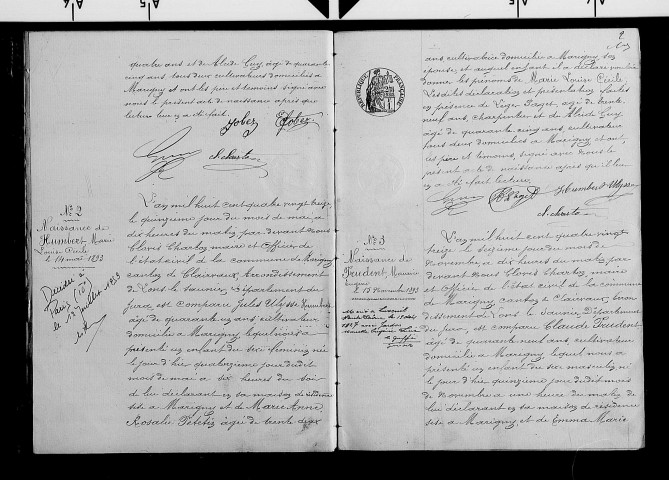 quatre ans et de Elude Guy, âgé de quarante
cinq ans tous deux cultivateurs domiciliés à
Marigny et ont les père et témoins signé avec
nous le présent acte de naissance après que
lecture leur en a été fait.
Jobez
Guy
Cl. charlet
N° 2
Naissance de
Humbert Marie
Louise Cécile
le 14 mai 1893
Décédée à
Paris
L'an mil huit cent quatre vingt treize
le quinzième jour du mois de mai à
dix heures du matin par devant nous
Clovis Charlet maire et officier de
l'état civil de la commune de Marigny
canton de Clairvaux arrondissement
de Lons le Saunier, Département du
Jura, est comparu Jules Ulysse Humbert
âgé de quarante ans cultivateur
domicilié à Marigny lequel nous a
présenté un enfant du sexe féminin né
le jour d'hier quatorzième jour dudit
mois de mai à six heures du soir
de lui déclarant en sa maison de résidence
sise à Marigny et de Marie Anne
Rosalie Petetin âgée de trente deux
2
ans, cultivatrice domiciliée à Marigny son
épouse, et auquel enfant il a déclaré vouloir
donner les prénoms de Marie Louise Cécile
Les dites déclaration et présentation faites
en présence de Léger Paget, âgé de trente
neuf ans, charpentier et de Elude Guy
âgé de quarante cinq ans, cultivateur
tous deux domiciliés à Marigny et ont,
les père et témoins, signé avec nous le
présent acte de naissance après qu'il leur
en a été fait lecture.
RÉPUBLIQUE FRANÇAISE
Guy
Paget
Humbert Ulysse
Cl. charlet
N° 3
Naissance de
Prudent, Maurice
le 15 novembre 1893
L'an mil huit cent quatre vingt
treize le seizième jour du mois de
novembre à dix heures du matin par
devant nous Clovis Charlet maire
et officier de l'état civil de la commune
de Marigny, canton de Clairvaux, arron
dissement de Lons le Saunier Département
du Jura, est comparu Claude Prudent
âgé de quarante neuf ans, cultivateur
domicilié à Marigny lequel nous a
présenté un enfant du sexe masculin né
le jour d'hier quinzième jour dudit mois
de novembre à une heure du matin de
lui déclarant en sa maison de résidence
sise à Marigny, et de Emma Marie